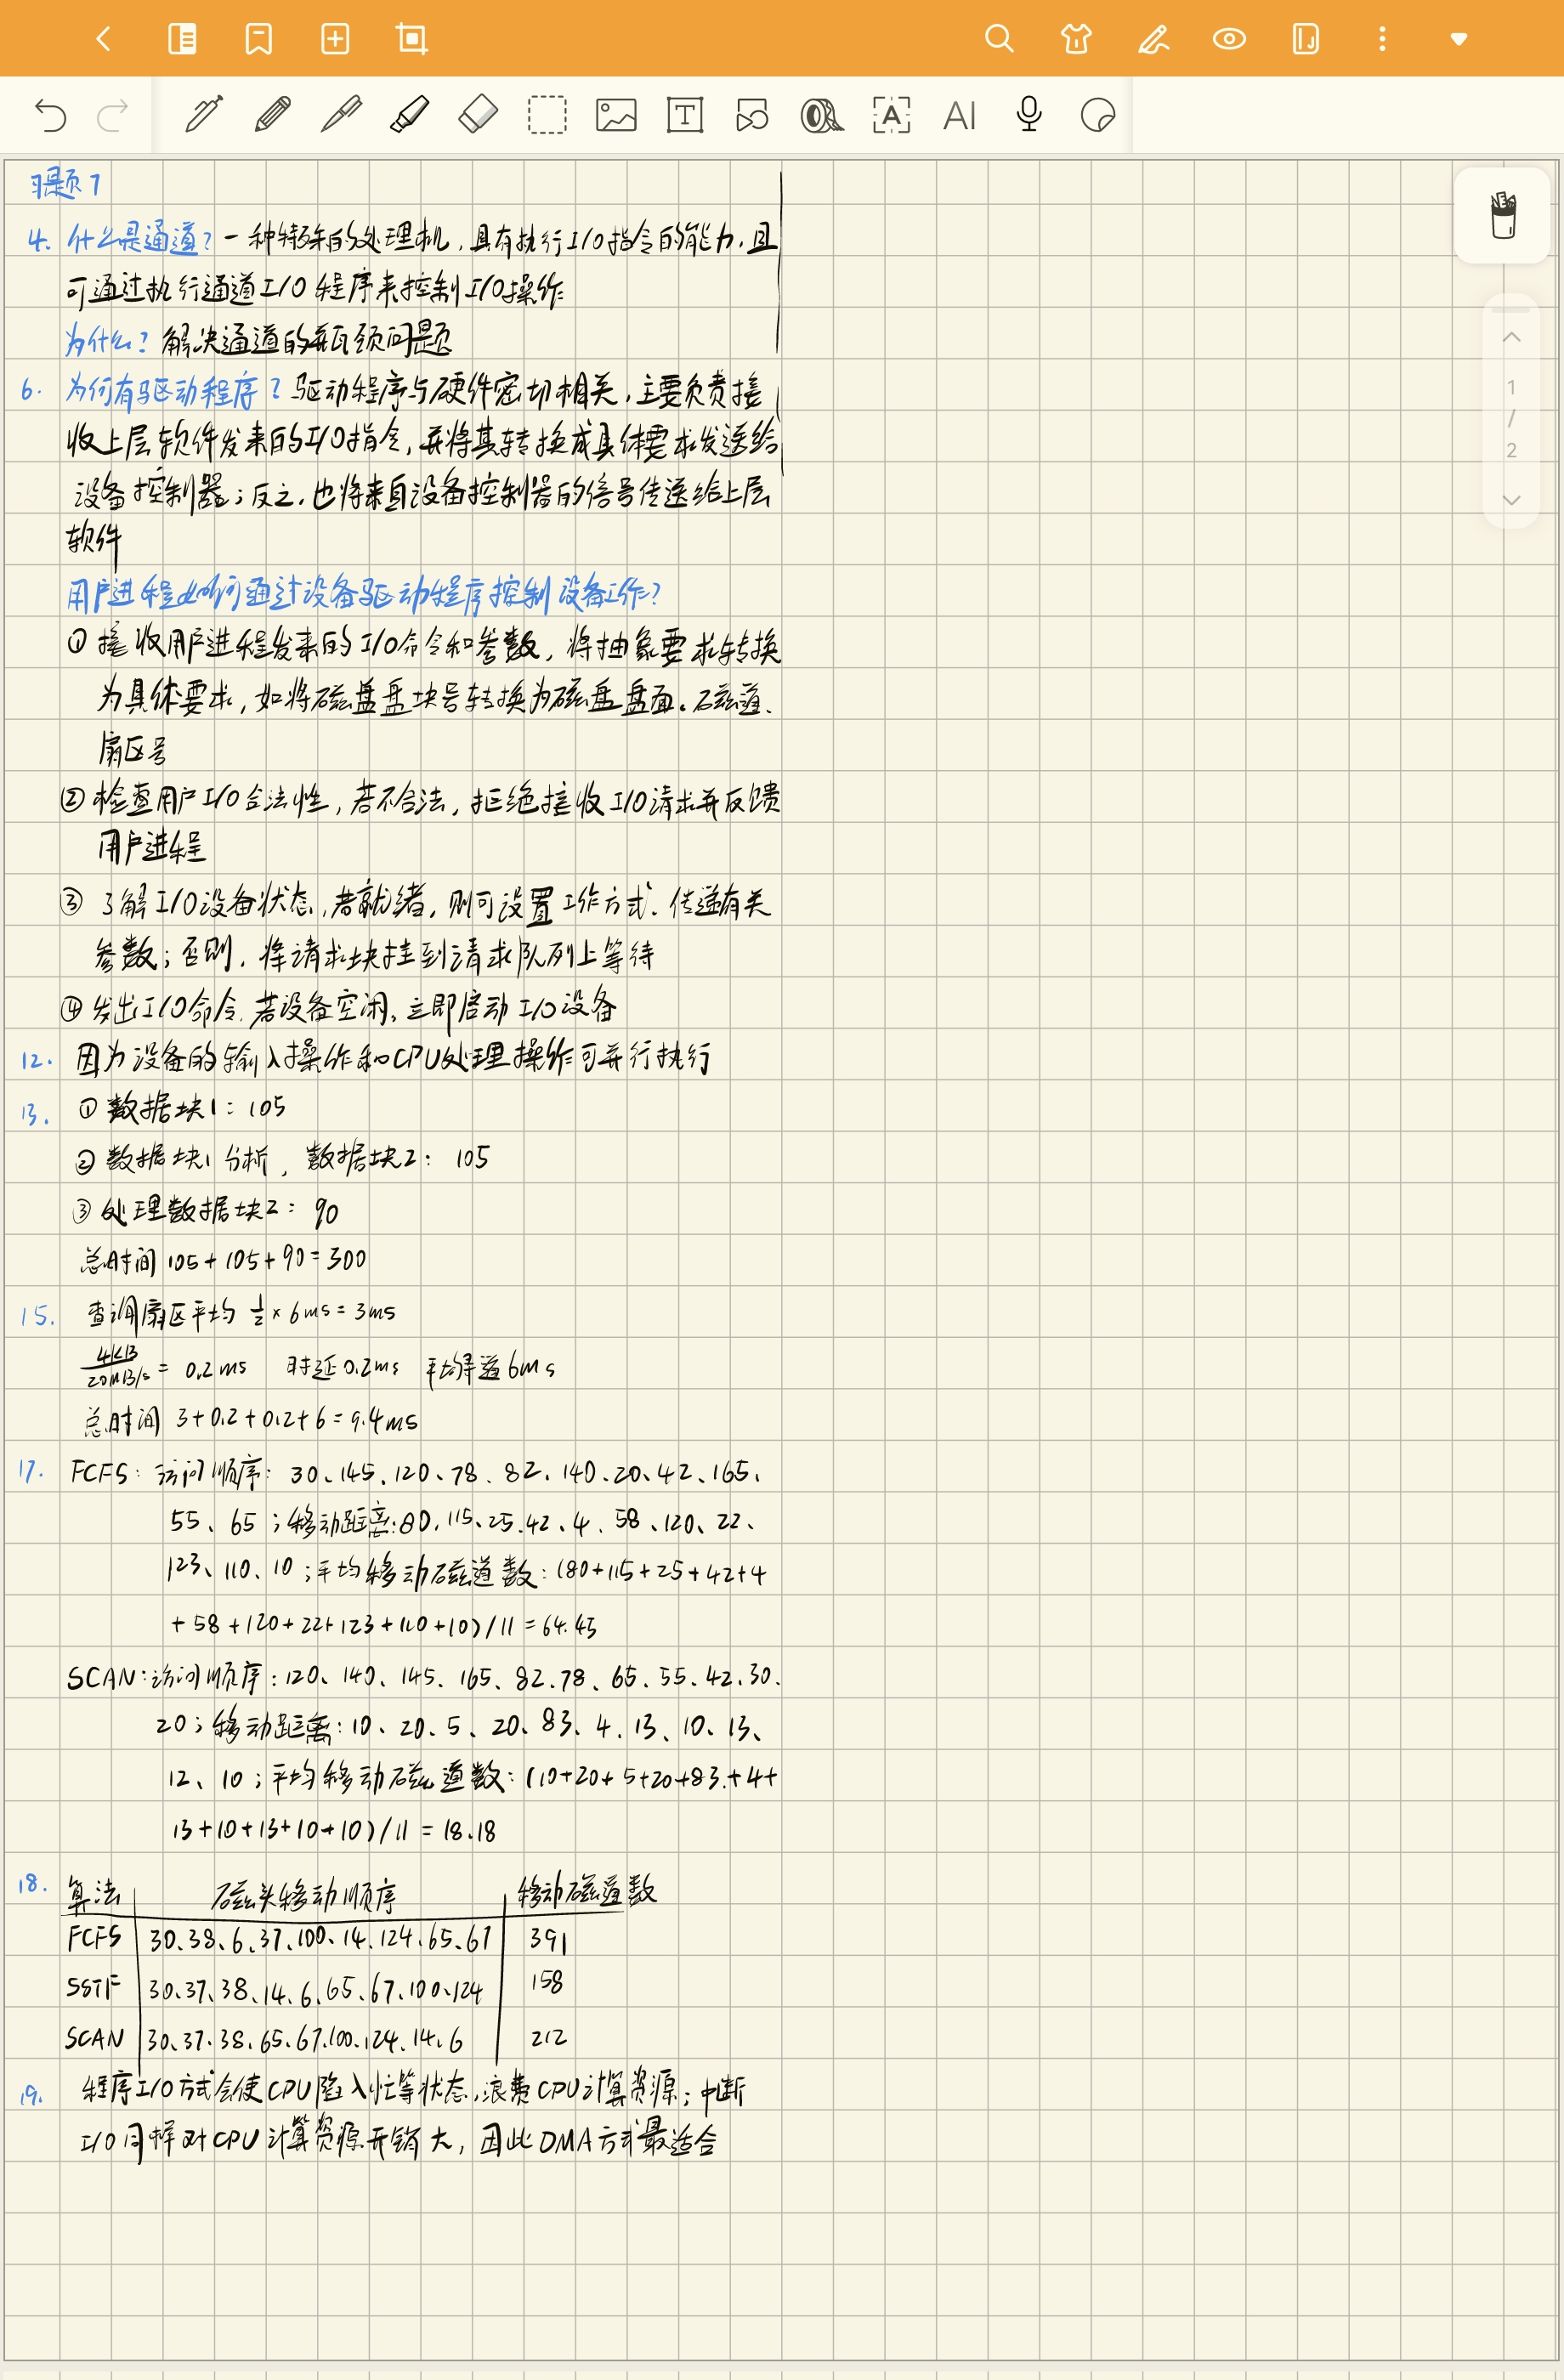 AI
1
/
2
习题7
4. 什么是通道？一种特殊的处理机，具有执行I/O指令的能力，且
可通过执行通道I/O程序来控制I/O操作
为什么？解决通道的瓶颈问题
6. 为何有驱动程序？驱动程序与硬件密切相关，主要负责接
收上层软件发来的I/O指令，并将其转换成具体要求发送给
设备控制器；反之，也将来自设备控制器的信号传送给上层
软件
用户进程如何通过设备驱动程序控制设备工作？
① 接收用户进程发来的I/O命令和参数，将抽象要求转换
为具体要求，如将磁盘盘块号转换为磁盘盘面、磁道、
扇区号
② 检查用户I/O合法性，若不合法，拒绝接收I/O请求并反馈
用户进程
③ 了解I/O设备状态，若就绪，则可设置工作方式、传递有关
参数；否则，将请求块挂到请求队列上等待
④ 发出I/O命令，若设备空闲，立即启动I/O设备
12. 因为设备的输入操作和CPU处理操作可并行执行
13. ① 数据块1：105
② 数据块1分析，数据块2：105
③ 处理数据块2：90
总时间 105+105+90=300
15. 查询扇区平均 1/2 × 6ms = 3ms
4KB/20MB/s = 0.2ms 时延0.2ms 平均寻道6ms
总时间 3+0.2+0.2+6=9.4ms
17. FCFS：访问顺序：30、145、120、78、82、140、20、42、165、
55、65；移动距离：80、115、25、42、4、58、120、22、
123、110、10；平均移动磁道数：(80+115+25+42+4
+58+120+22+123+110+10)/11=64.45
SCAN：访问顺序：120、140、145、165、82、78、65、55、42、30、
20；移动距离：10、20、5、20、83、4、13、10、13、
12、10；平均移动磁道数：(10+20+5+20+83+4+
13+10+13+10+10)/11=18.18
18. 算法 磁头移动顺序 移动磁道数
FCFS 30、38、6、37、100、14、124、65、67 391
SSTF 30、37、38、14、6、65、67、100、124 158
SCAN 30、37、38、65、67、100、124、14、6 212
19. 程序I/O方式会使CPU陷入忙等状态，浪费CPU计算资源；中断
I/O同样对CPU计算资源开销大，因此DMA方式最适合